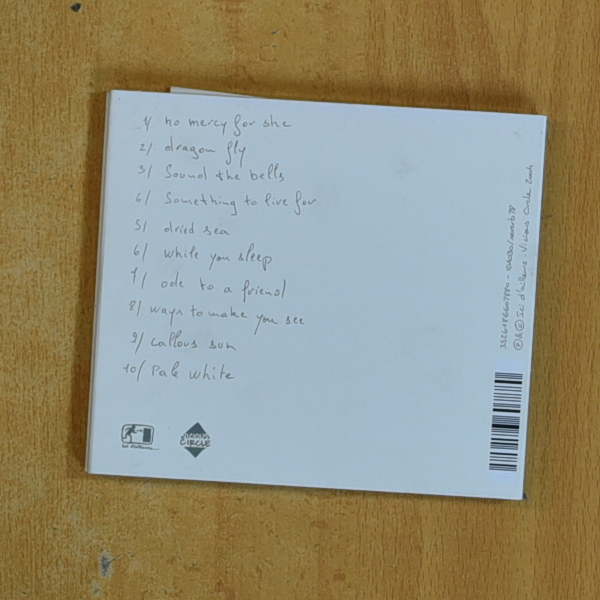 1/ no mercy for she
2/ dragon fly
3/ Sound the bells
4/ Something to live for
5/ dried sea
6/ while you sleep
7/ ode to a friend
8/ ways to make you see
9/ callous sun
10/ Pale white
ici d'ailleurs...
VICIOUS
CIRCLE
Ⓟ & © Ici d'ailleurs - Vicious Circle 2004